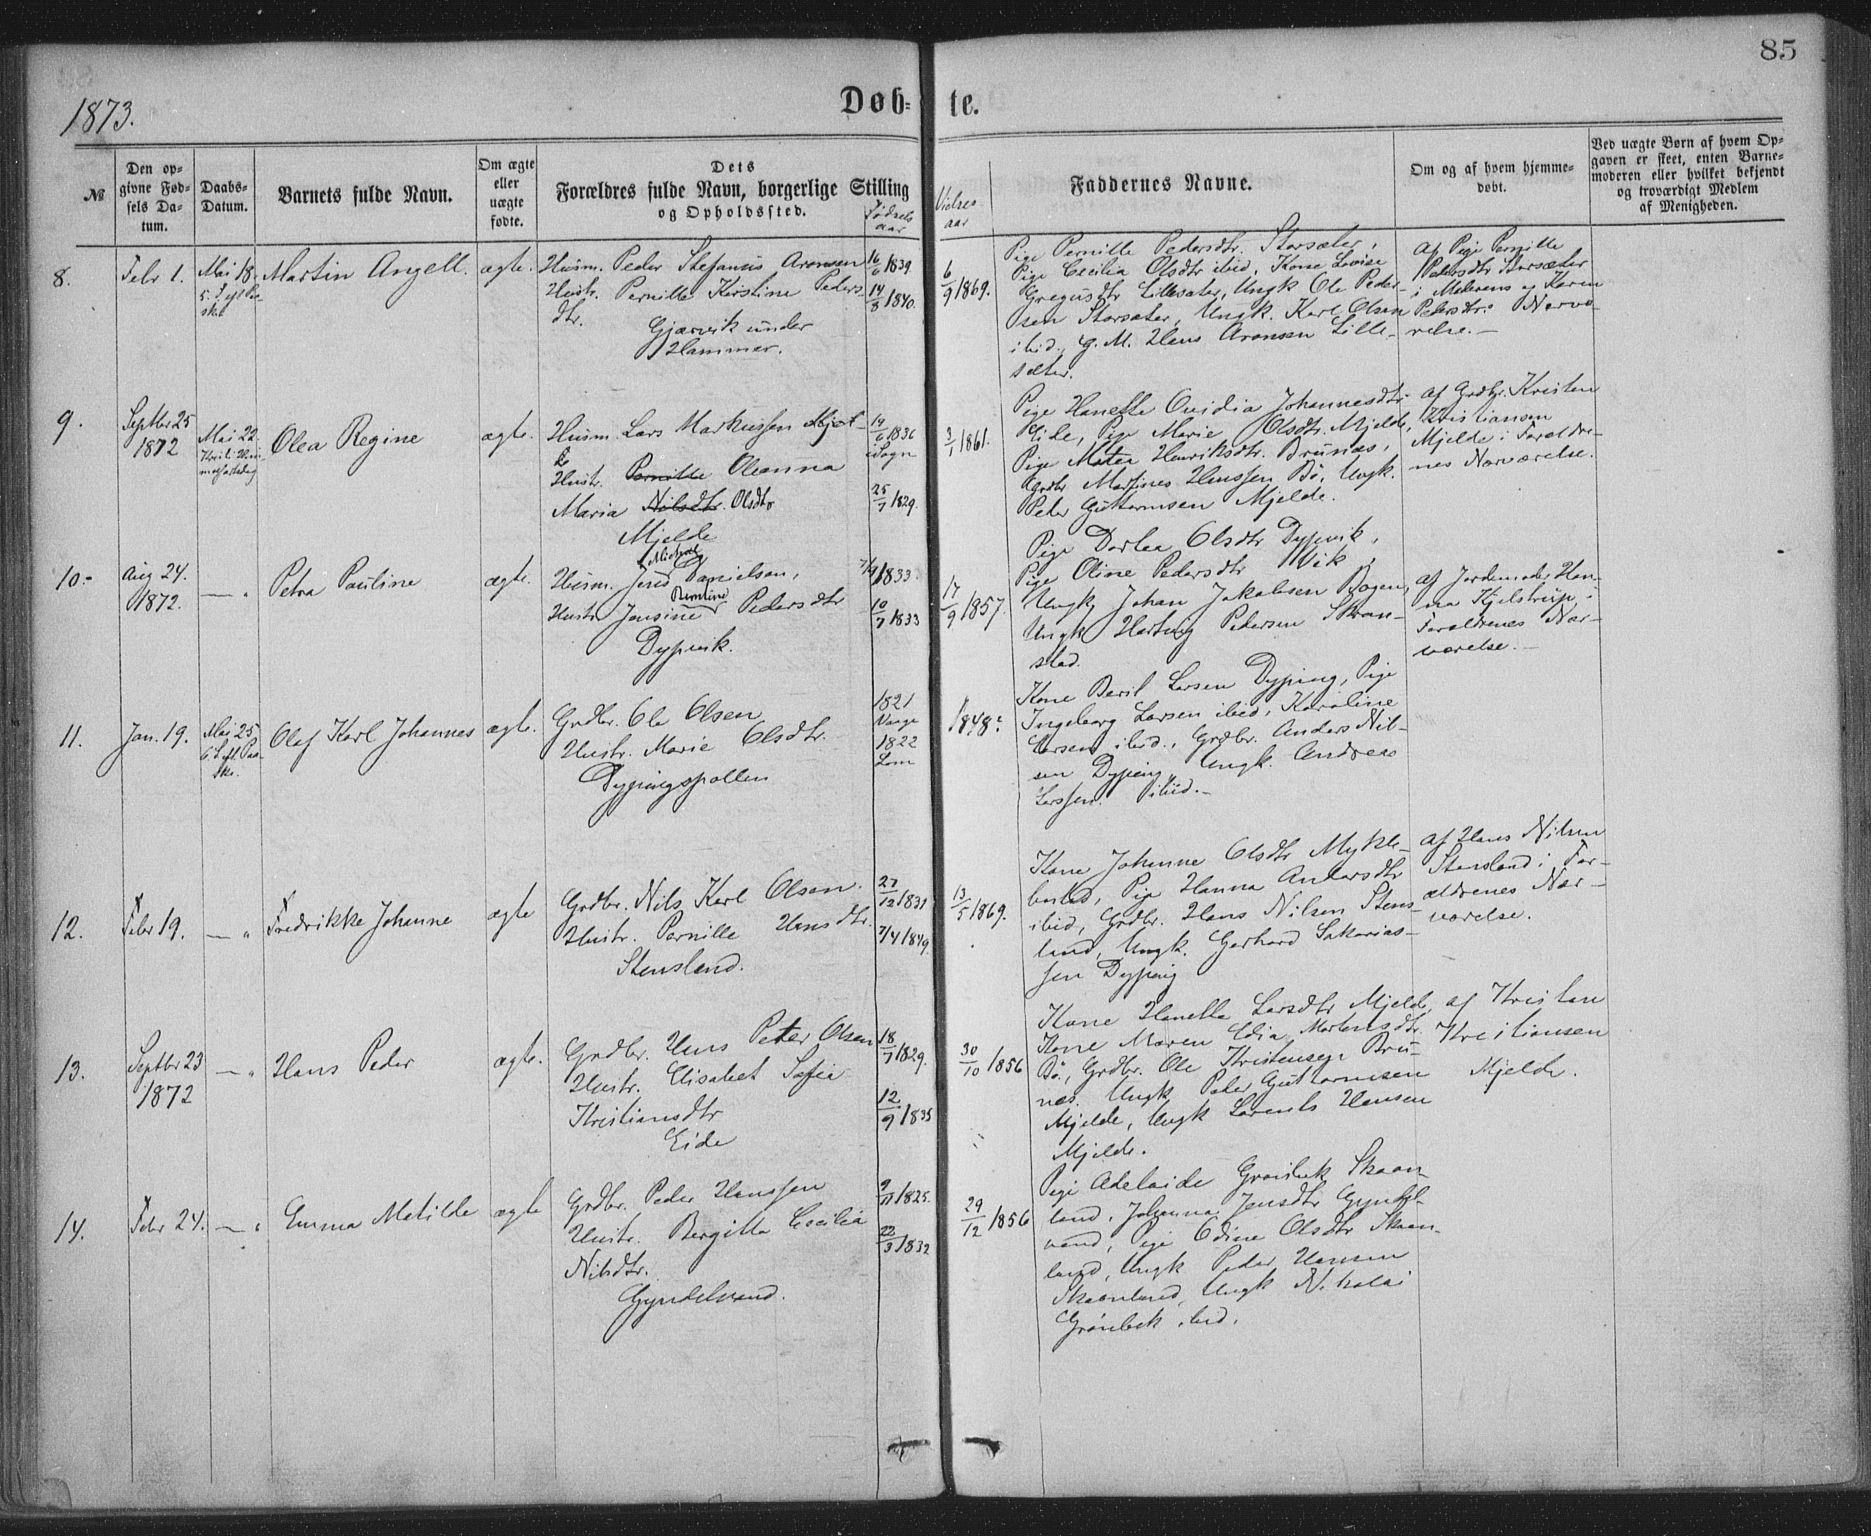 85
1873.
Døb-
te.
№
Den op-
givne Fød-
sels Da-
tum.
Daabs-
Datum.
Barnets fulde Navn.
Om ægte
eller
uægte
fødte.
Dets
Forældres fulde Navn, borgerlige Stilling
og Opholdssted.
Fødsels
aar
Vielses
aar
Faddernes Navne.
Om og af hvem hjemme-
døbt.
Ved uægte Børn af hvem Op-
gaven er skeet, enten Barne-
moderen eller hvilket bekjendt
og troværdigt Medlem
af Menigheden.
8.
Febr 1.
Mai 18.
Martin Angell.
ægte.
Husm. Peder Stefanus Aronsen
Hustr. Pernille Kirstine Peders-
dtr.
Gjærvik under
Hammer.
16/6 1839
14/8 1840.
6/9 1869.
Pige Pernille Pedersdtr. Storsæter,
Pige Cecilia Olsdtr ibid, Kone Lovise
Gregusdtr Lillesæter, Ungk Ole Peder-
sen Storsæter, Ungk. Karl Olsen
ibid., G. M. Hans Aronsen Lille-
sæter.
af Pige Pernille
Pedersdtr Storsæter
i Moderens og Karen
Pedersdtrs Nærvæ-
relse.-
9.
Septbr 25
1872
Mai 22
Olea Regine
ægte.
Husm. Lars Markussen
Hustr. Pernille Oleanna
Maria Nilsdtr. Olsdtr
Mjelde
14/6 1836
i Sogn
25/7 1829.
3/1 1861.
Pige Hanette Ovidia Johannesdtr
Eide, Pige Marie Olsdtr. Mjelde,
Pige Mater Henriksdtr. Brunæs,
Grdbr Martines Hanssen Bø, Ungk.
Peder Guttormsen Mjelde.
af Grdbr. Kristen
Kristiansen
Mjelde i Forældre-
nes Nærværelse.
10.-
Aug 24.
1872.
— "
Petra Pauline
ægte.
Husm. Jens Mickal Danielsen,
Hustr. Jensine Pauline Pedersdtr
Dypvik.
7/9 1833.
10/7 1833
17/9 1857.
Pige Dortea Olsdtr Dypvik,
Pige Oline Pedersdtr Vik,
Ungk Johan Jakobsen Bogen,
Ungk Hartvig Pedersen Skran-
stad.
af Jordemoder Han-
na Kjelstrup i
Forældrenes Nær-
værelse.-
11.
Jan. 19.
Mai 25
Olaf Karl Johannes
ægte.
Grdbr. Ole Olsen
Hustr. Marie Olsdtr.
Dypingspollen
1821
Vaage
1822
Lom
1848?
Kone Beril Larsen Dyping, Pige
Ingeborg Larsen ibid, Karoline
Larsen ibid., Grdbr. Anders Nil-
sen Dyping, Ungk. Andreas
Larssen ibid.-
12.
Febr 19.
— "
Fredrikke Johanne
ægte
Grdbr. Nils Karl Olsen.
Hustr. Pernille Hansdtr.
Stensland.
27/12 1831
7/4 1849.
13/5 1869.
Kone Johanne Olsdtr Mykle-
bostad, Pige Hanna Andersdtr
ibid, Grdbr. Hans Nilsen Stens-
land, Ungk. Gerhard Sakarias-
sen Dyping
af Hans Nilsen
Stensland i For-
ældrenes Nær-
værelse.
13.
Septbr 23
1872
— "
Hans Peder
ægte.
Grdbr. Hans Peter Olsen
Hustr. Elisabet Sofie
Kristiansdtr
Eide
18/7 1829.
12/9 1835
30/10 1856
Kone Hanella Larsdtr Mjelde,
Kone Maren Edia Mortensdtr.
Bø, Grdbr. Ole Kristensen Bru-
næs. Ungk Peder Guttormsen
Mjelde, Ungk Lorents Hansen
Mjelde.
af Kristen
Kristiansen
Mjelde.
14.
Febr 24.
— "
Emma Matilde
ægte
Grdbr. Peder Hanssen
Hustr. Bergitte Cecilia
Nilsdtr.
Gyndelvand.
9/11 1825.
22/3 1832
29/12 1856
Pige Adelaide Grønbek Skaan-
land, Johanna Jensdtr Gyndel-
vand, Pige Odine Olsdtr Skaan-
land, Ungk Peder Hansen
Skaanland, Ungk Nikolai
Grønbek ibid.